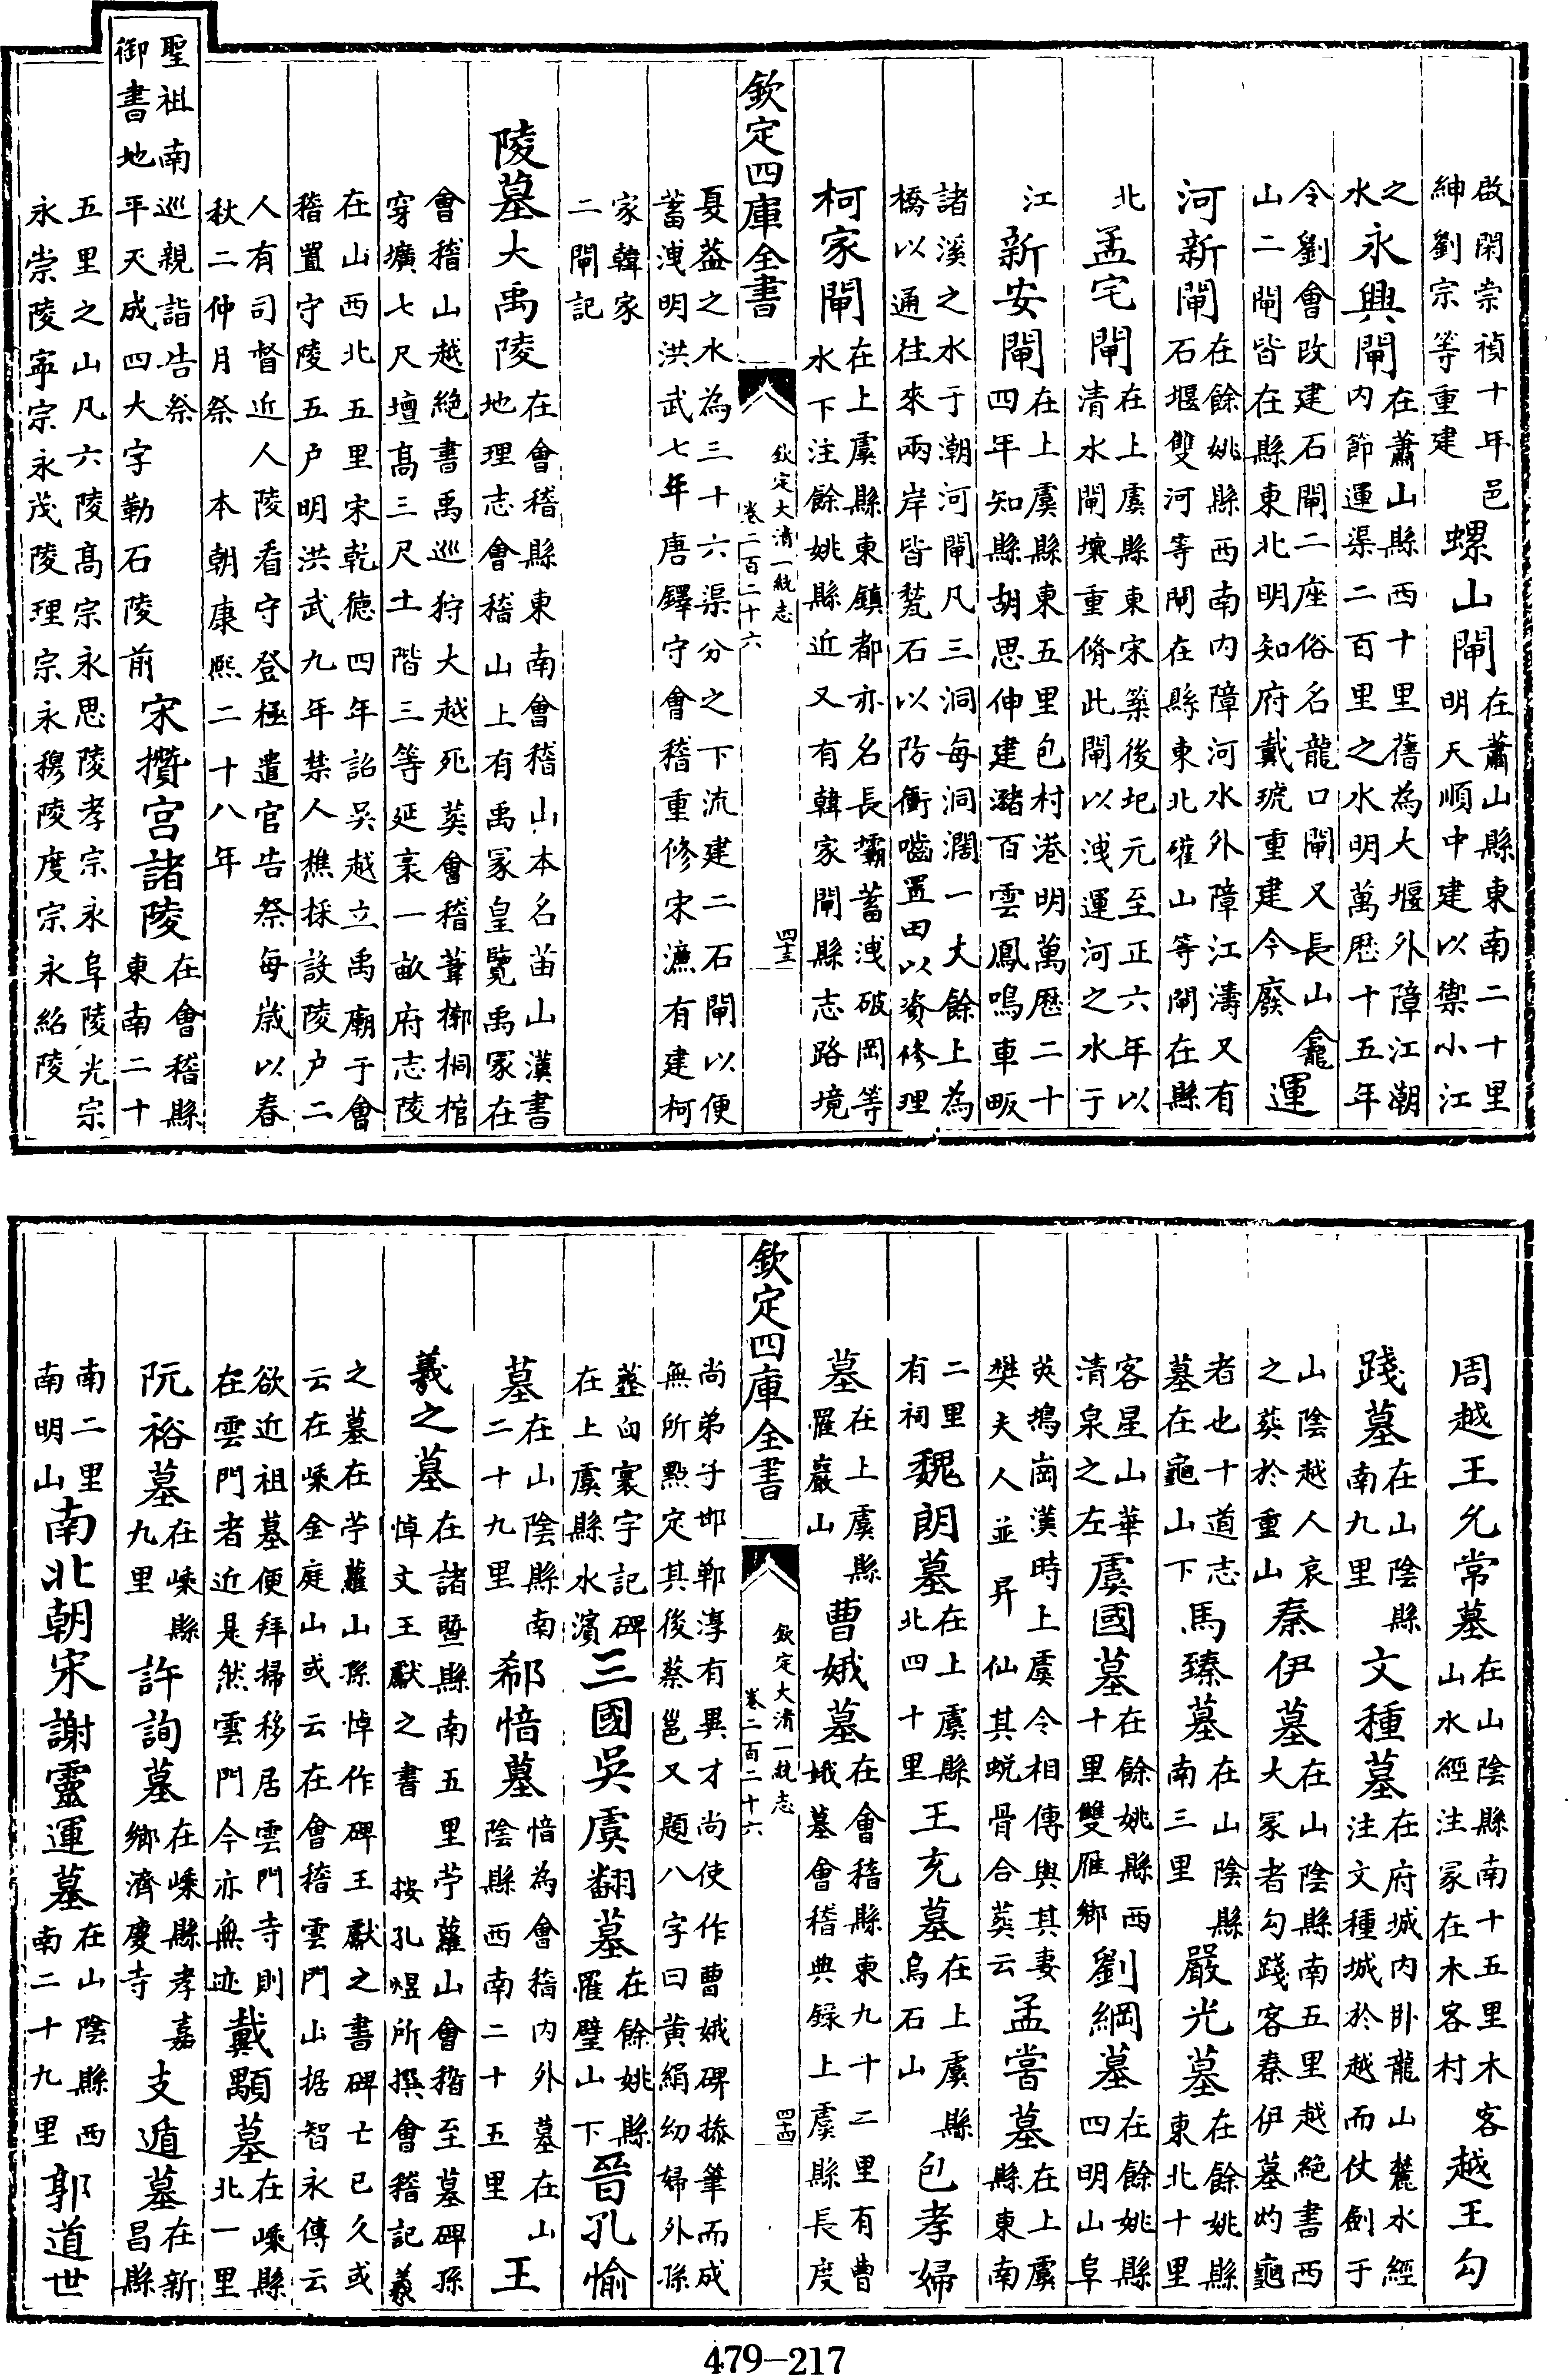 啟閉崇禎十年邑紳劉宗等重建螺山閘在蕭山縣東南二十里明天順中建以禦小江
之水永興閘在蕭山縣西十里舊為大堰外障江潮内節運渠二百里之水明萬厯十五年
令劉會改建石閘二座俗名龍口閘又長山龕山二閘皆在縣東北明知府戴琥重建今廢運
河新閘在餘姚縣西南内障河水外障江濤又有石堰雙河等閘在縣東北䃶山等閘在縣
北孟宅閘在上虞縣東宋築後圮元至正六年以清水閘壞重脩此閘以洩運河之水于
江新安閘在上虞縣東五里包村港明萬厯二十四年知縣胡思伸建瀦百雲鳳鳴車畈
諸溪之水于潮河閘凡三洞每洞濶一丈餘上為橋以通往來兩岸皆甃石以防衝囓置田以資修理
柯家閘在上虞縣東鎮都亦名長壩蓄洩破岡等水下注餘姚縣近又有韓家閘縣志路境
欽定四庫全書 欽定大清一統志卷二百二十六 四十三
夏葢之水為三十六渠分之下流建二石閘以便蓄洩明洪武七年唐鐸守會稽重修宋濂有建柯
家韓家二閘記
陵墓大禹陵在會稽縣東南會稽山本名苗山漢書地理志會稽山上有禹冢皇覽禹冢在
會稽山越絶書禹巡狩大越死葬會稽葦槨桐棺穿壙七尺壇髙三尺土階三等延袤一畝府志陵
在山西北五里宋乾德四年詔吳越立禹廟于會稽置守陵五户明洪武九年禁人樵採設陵户二
人有司督近人陵看守登極遣官告祭每嵗以春秋二仲月祭本朝康熙二十八年
聖祖南巡親詣告祭御書地平天成四大字勒石陵前宋攢宫諸陵在會稽縣東南二十
五里之山凡六陵髙宗永思陵孝宗永阜陵光宗永崇陵寜宗永茂陵理宗永穆陵度宗永紹陵
周越王允常墓在山陰縣南十五里木客山水經注冢在木客村越王勾
踐墓在山陰縣南九里文種墓在府城内卧龍山麓水經注文種城於越而伏劍于
山陰越人哀之葬於重山秦伊墓在山陰縣南五里越絶書西大冢者勾踐客秦伊墓灼龜
者也十道志墓在龜山下馬臻墓在山陰縣南三里嚴光墓在餘姚縣東北十里
客星山華清泉之左虞國墓在餘姚縣西十里雙雁鄉劉綱墓在餘姚縣四明山阜
莢撝崗漢時上虞令相傳與其妻樊夫人並昇仙其蜕骨合葬云孟嘗墓在上虞縣東南
二里有祠魏朗墓在上虞縣北四十里王充墓在上虞縣烏石山包孝婦
墓在上虞縣罹巖山曹娥墓在會稽縣東九十二里有曹娥墓會稽典録上虞縣長度
欽定四庫全書 欽定大清一統志卷二百二十六 四十四
尚弟子邯鄲淳有異才尚使作曹娥碑掭筆而成無所㸃定其後蔡邕又題八字曰黄絹幼婦外孫
虀臼寰宇記碑在上虞縣水濱三國吳虞翻墓在餘姚縣罹壁山下晉孔愉
墓在山陰縣南二十九里郗愔墓愔為會稽内外墓在山陰縣西南二十五里王
羲之墓在諸暨縣南五里苧蘿山會稽至墓碑孫悼文王獻之書按孔煜所撰會稽記羲
之墓在苧蘿山孫悼作碑王獻之書碑亡已久或云在嵊金庭山或云在會稽雲門山据智永傳云
欲近祖墓便拜掃移居雲門寺則在雲門者近是然雲門今亦無迹戴顒墓在嵊縣北一里
阮裕墓在嵊縣九里許詢墓在嵊縣孝嘉鄉濟慶寺支遁墓在新昌縣
南二里南明山南北朝宋謝靈運墓在山陰縣西南二十九里郭道世
479-217